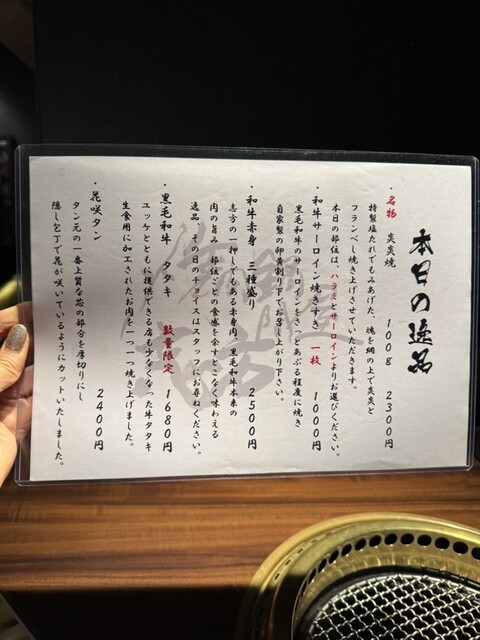 本日の逸品
・名物　炎炎焼　100g　2300円
特製塩たれでもみあげた、塊を網の上で炎炎と
フランベし焼き上げさせていただきます。
本日の部位は、ハラミとサーロインよりお選びください。
・和牛サーロイン焼きすき　一枚　1000円
黒毛和牛のサーロインをさっとあぶる程度に焼き
自家製の卵割り下でお召し上がり下さい。
・和牛赤身　三種盛り　2500円
志方の一押しでもある赤身肉、黒毛和牛本来の
肉の旨み、部位ごとの食感を余すとこなく味わえる
逸品。その日のチョイスはスタッフにお尋ねください。
・黒毛和牛　タタキ　数量限定　1680円
ユッケとともに提供できる店も少なくなった牛タタキ
生食用に加工されたお肉を一つ一つ焼き上げました。
・花咲タン　2400円
タン元の一番上質な芯の部分を厚切りにし
隠し包丁で花が咲いているようにカットいたしました。